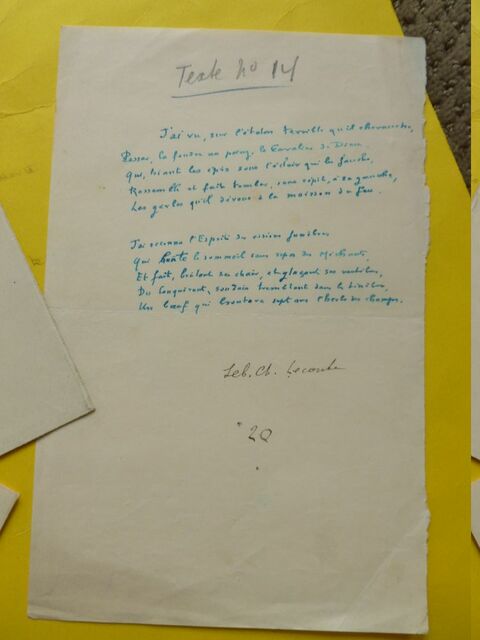 Texte no 14
J'ai vu, sur l'étalon terrible qu'il chevauche,
Passer, la foudre au poing, le Cavalier de Dieu
Qui, liant les épis sous l'éclair qui les fauche,
Rassemble et fait tomber, sans répit, à sa gauche,
Les gerbes qu'il dévoue à la moisson du feu.
J'ai reconnu l'Esprit des visions funèbres
Qui hante le sommeil sans repos des Méchants,
Et fait, brûlant sa chair, et glaçant ses vertèbres,
Du Conquérant, soudain tremblant dans les ténèbres,
Un bœuf qui broutera sept ans l'herbe des champs.
Seb. Ch. Leconte
20